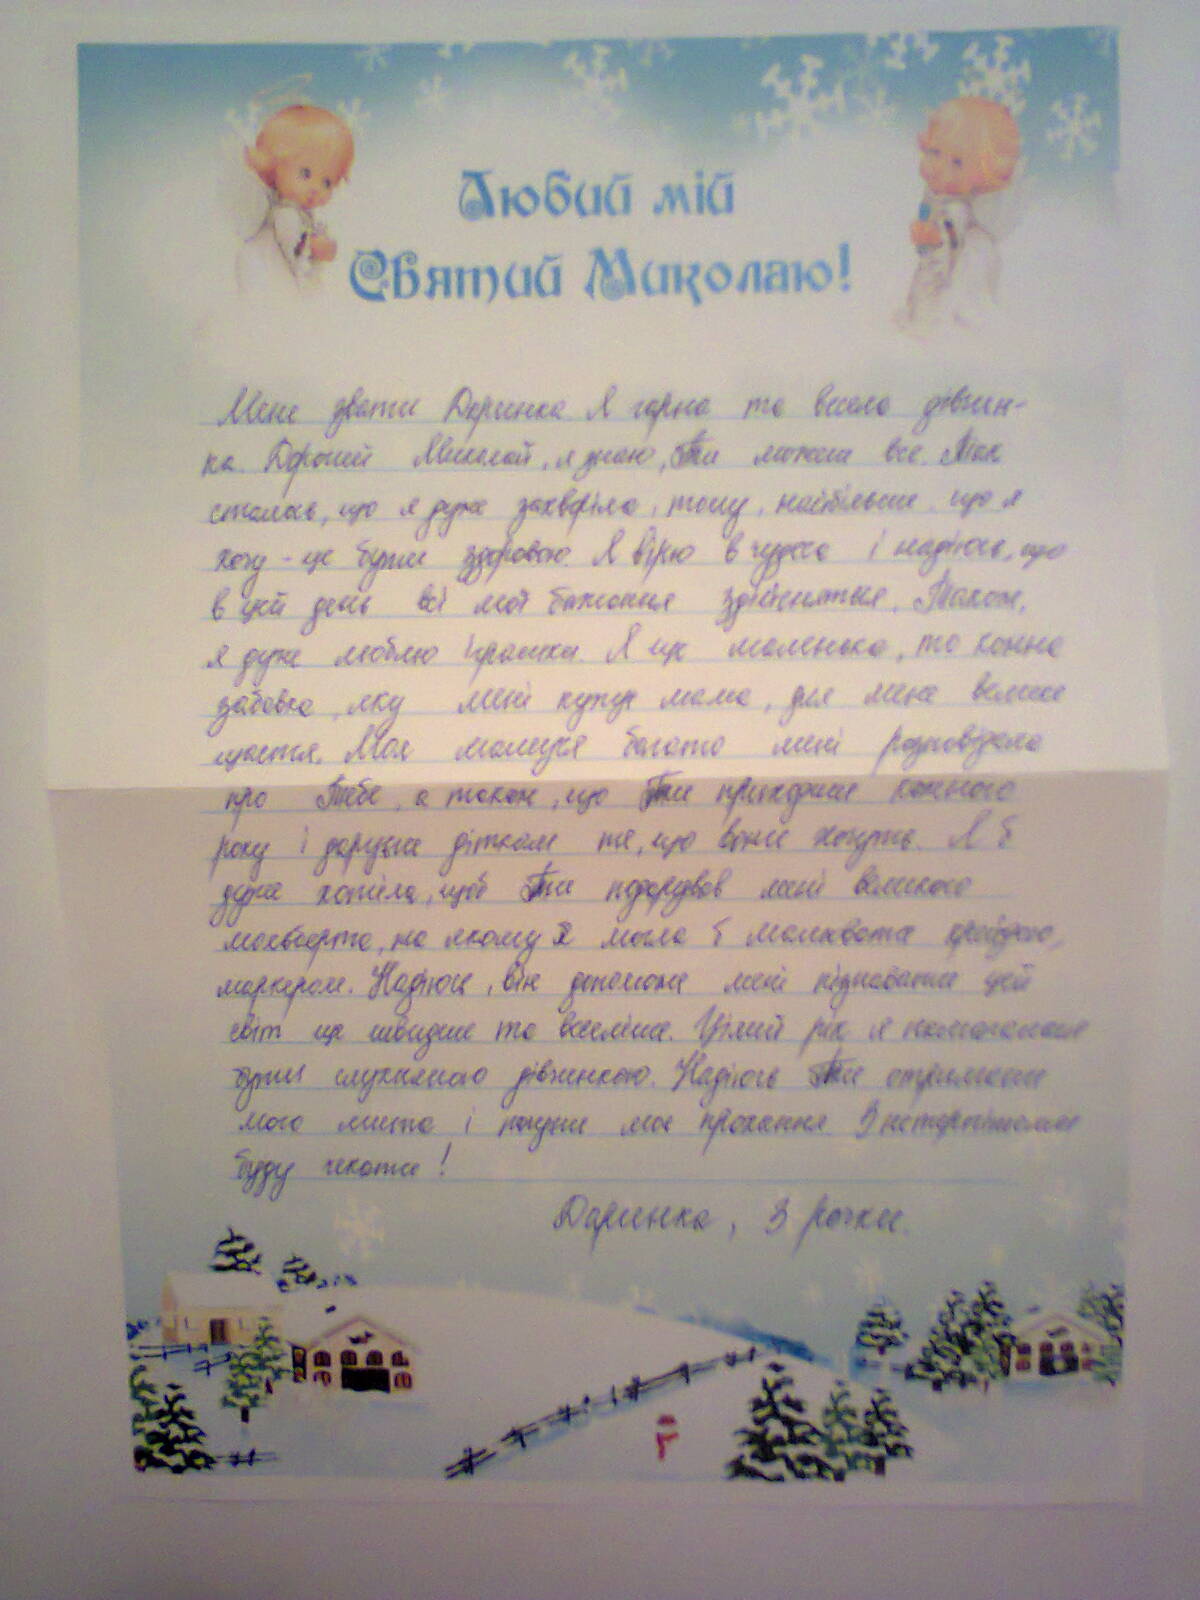 Любий мій
Святий Миколаю!
Мене звати Даринка Я гарна та весела дівчин-
ка. Дорогий Миколай, я знаю, Ти можеш все. Так
сталось, що я дуже захворіла, тому, найбільше, що я
хочу - це бути здоровою. Я вірю в чудеса і надіюсь, що
в цей день всі мої бажання здійсняться. Також,
я дуже люблю іграшки. Я ще маленька, то кожна
забавка, яку мені купує мама, для мене велике
щастя. Моя матуся багато мені розповідала
про Тебе, а також, що Ти приходиш кожного
року і даруєш діткам те, що вони хочуть. Я б
дуже хотіла, щоб Ти подарував мені великого
мольберта, на якому я могла б малювати крейдою,
маркером. Надіюсь, він допоможе мені пізнавати цей
світ ще швидше та веселіше. Цілий рік я намагалась
бути слухняною дівчинкою. Надіюсь Ти отримаєш
мого листа і почуєш моє прохання З нетерпінням
буду чекати!
Даринка, 3 рочки.